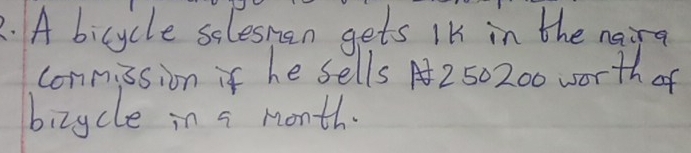 2. A bicycle salesman gets 1K in the naira
commission if he sells ₦250200 worth of
bizycle in a month.